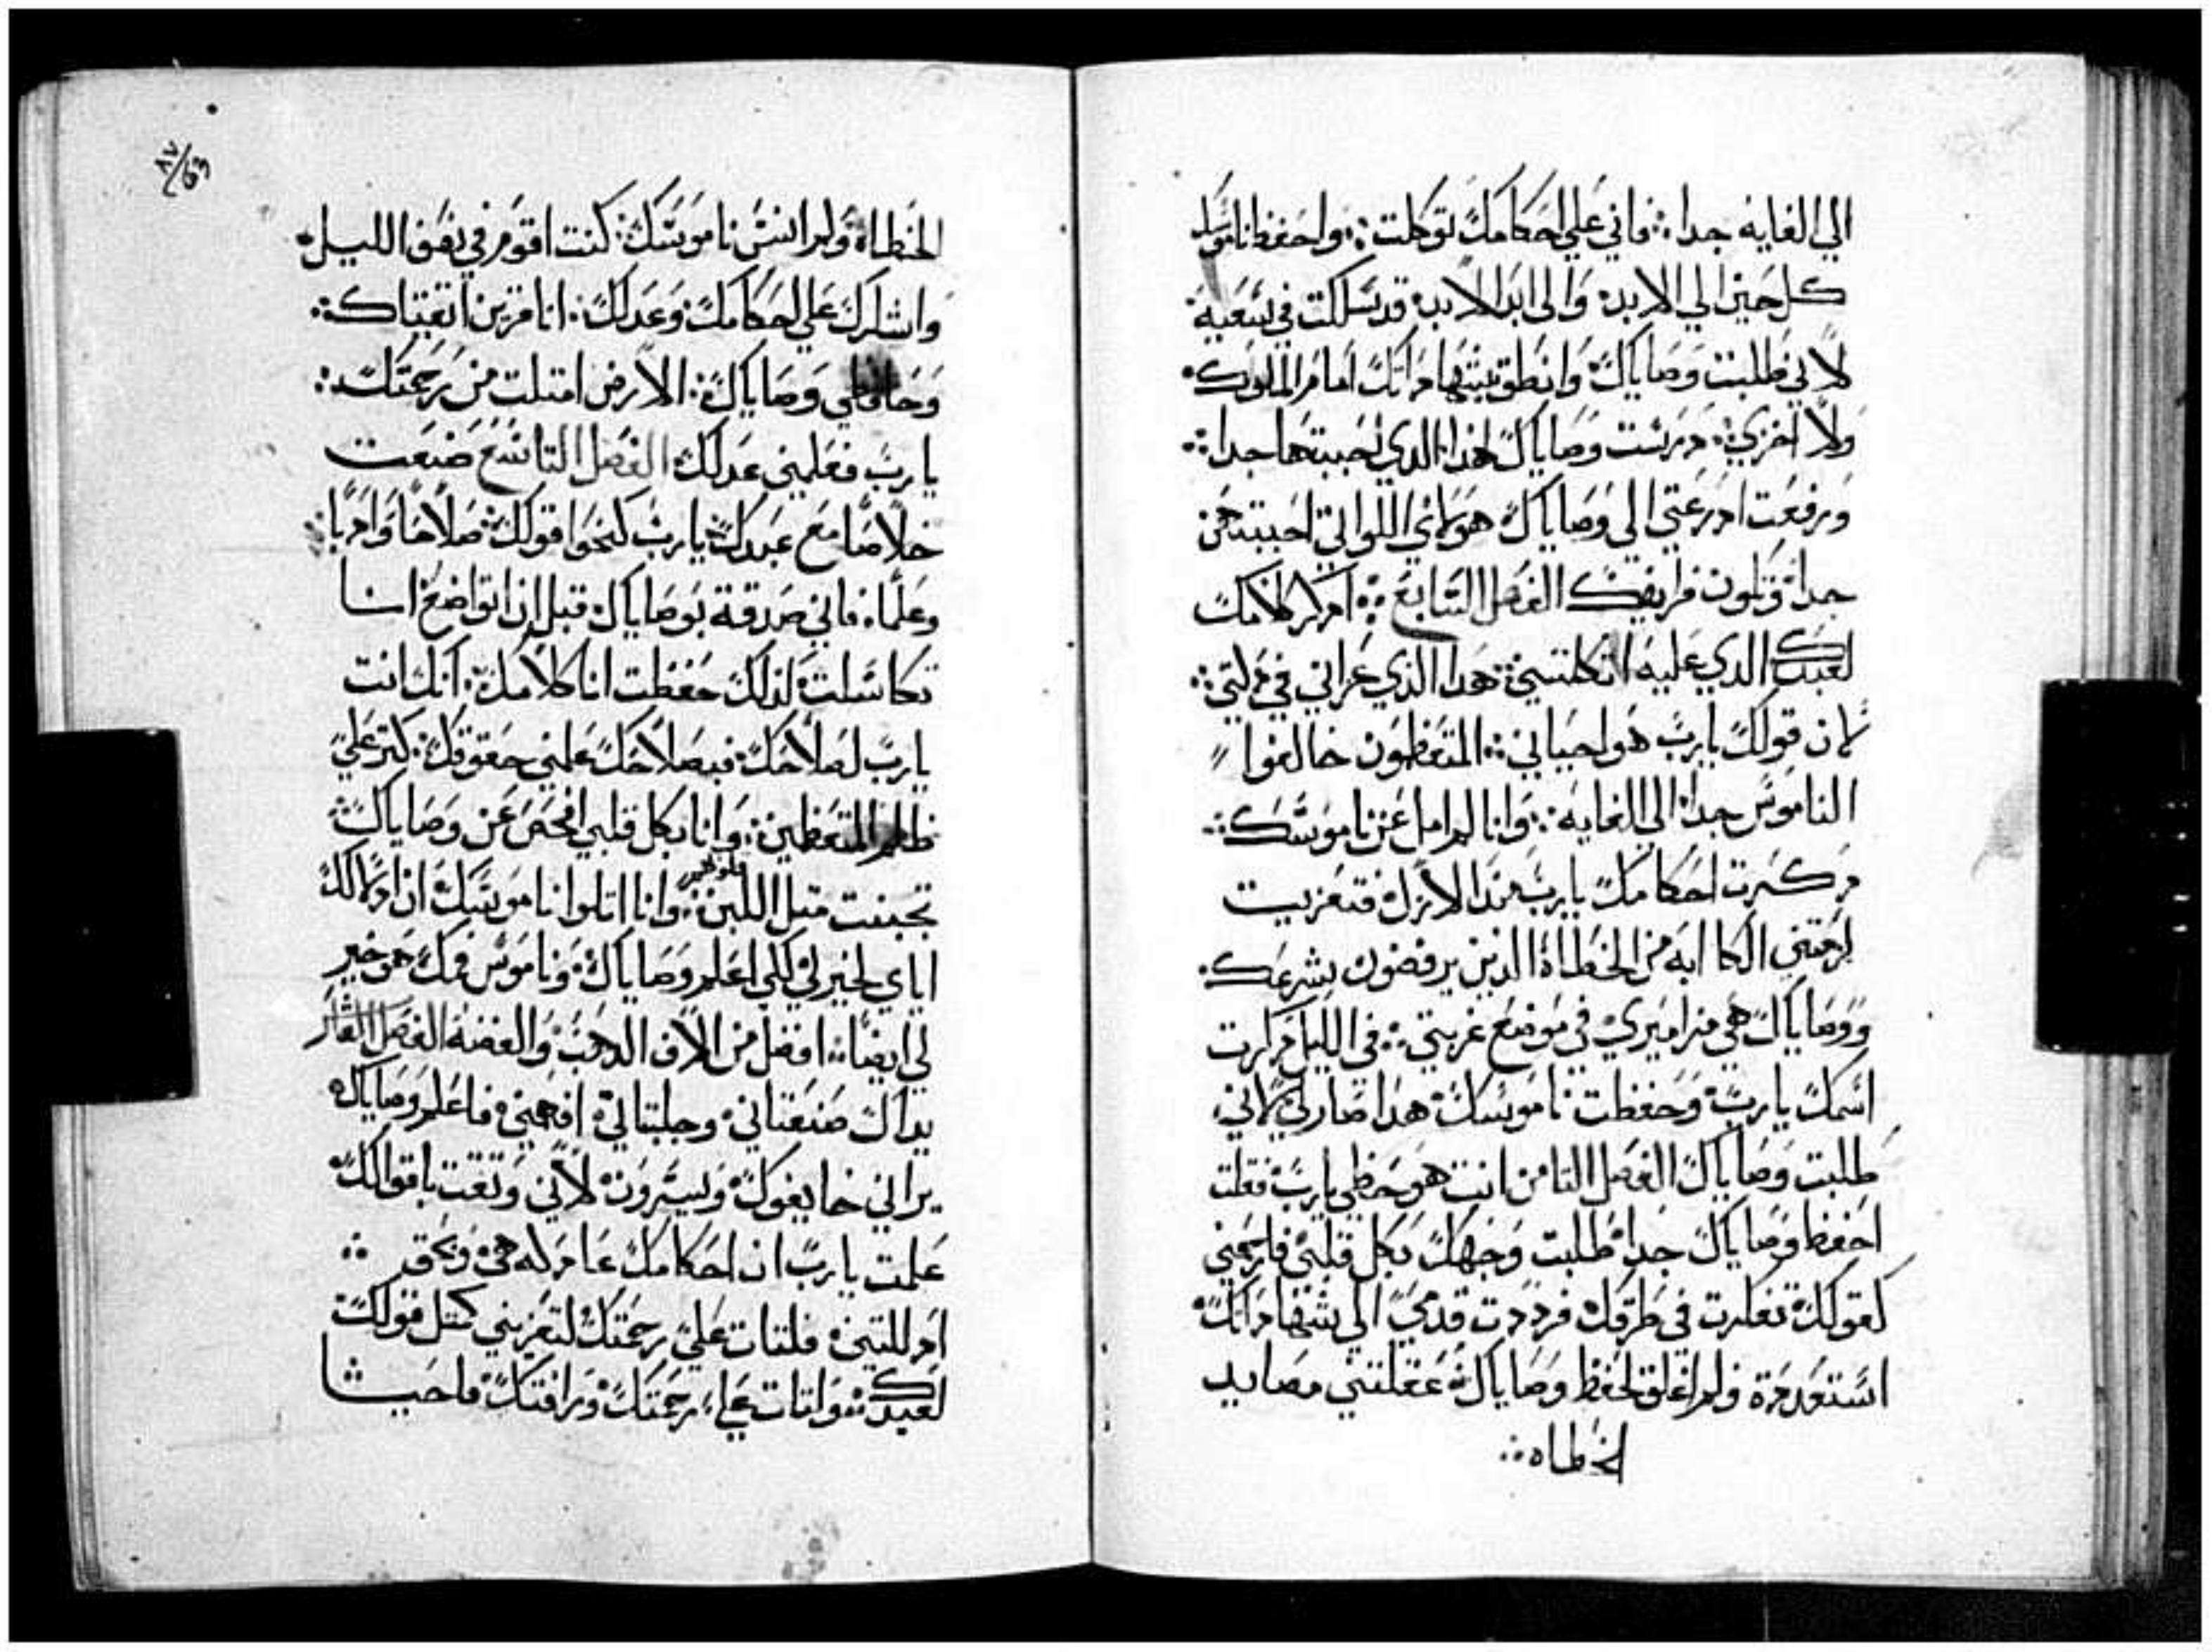 الي الغايه جدا فاني علي احكامك توكلت واحفظ ناموسك
كل حين الي الابد والى ابد الابد قد سلكت في سعيه
لاني طلبت وصاياك وانطق بشهاداتك امام الملوك
ولا اخزي درست وصاياك هذا الدي احببتها جدا
ورفعت ادرعتي الي وصاياك هولاي اللواتي احببتهن
جدا وتلوت فرايضك الفصل السابع ادكر كلامك
لعبدك الدي عليه اتكلتني هدا الذي عزاني في دلتي
لان قولك يارب هو احياني المتعظمون خالفوا
الناموس جدا الي الغايه وانا لم امل عن ناموسك
دكرت احكامك يارب مند الازل فتعزيت
لزمتني الكاابه من الخطاة الدين يرفضون شرعك
ووصاياك هي مزاميري في موضع غربتي في الليل دكرت
اسمك يارب وحفظت ناموسك هدا صار لي لاني
طلبت وصاياك الفصل التامن انت هو حظي يارب فقلت
احفظ وصاياك جدا طلبت وجهك بكل قلبي فارحمني
كقولك تفكرت في طرقك فرددت قدمي الي شهاداتك
استعددة ولم اغلق لحفظ وصاياك عقلتني مصايد
الخطاه
٨٧
63
الخطاة ولم انس ناموسك كنت اقوم في نصف الليل
واشكرك علي احكامك وعدلك انا قرين اتقياك
وحافظي وصاياك الارض امتلت من رحمتك
يارب فعلمني عدلك الفصل التاسع صنعت
خلاصا مع عبدك يارب كنحوا قولك صلاحا وادبا
وعلما فاني صدقة بوصاياك قبل ان اتواضع انا
تكاسلت لذلك حفظت انا كلامك انك انت
يارب لصلاحك فبصلاحك علمني حقوقك كتر علي
ظلم المتعظمين وانا بكل قلبي افحص عن وصاياك
قلوبهم
تجبنت متل اللبن وانا اتلوا ناموسك ان ادلالك
اياي لخير لي لكي اعلم وصاياك وناموس فمك هو خير
لي ايضا افضل من الاف الدهب والفضه الفصل العاشر
يداك صنعتاني وجلبتاني افهمني فاعلم وصاياك
يراني خايفوك ويسرون لاني وتقت باقوالك
علمت يارب ان احكامك عادله هي وبحق
ادللتني فلتات علي رحمتك لتعزيني كمتل قولك
لعبدك ولتات علي رحمتك ورافتك فاحيا